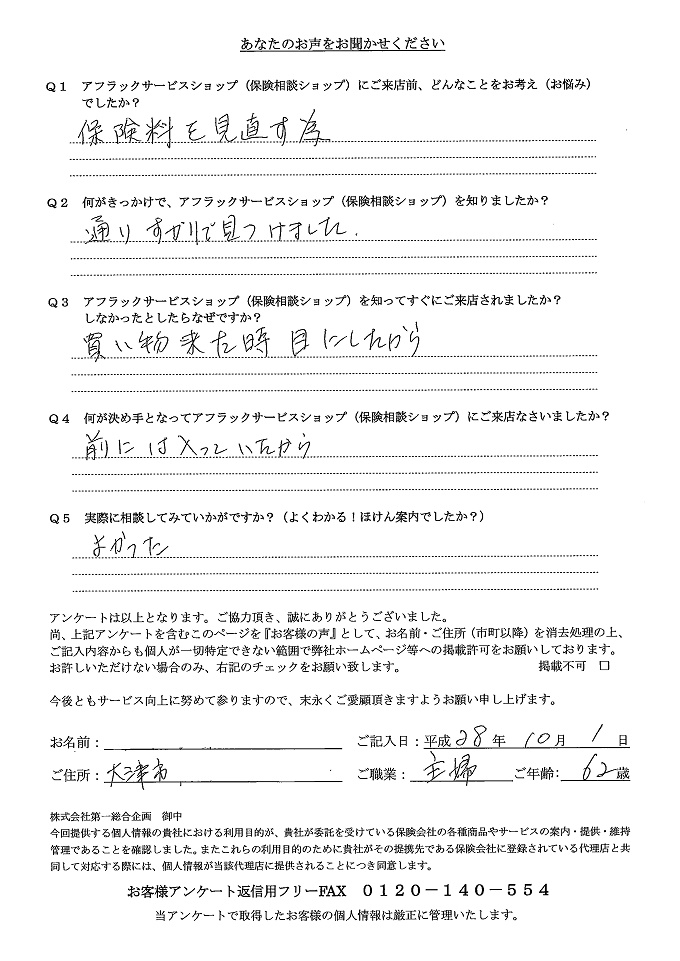 あなたのお声をお聞かせください
Q1 アフラックサービスショップ（保険相談ショップ）にご来店前、どんなことをお考え（お悩み）
でしたか？
保険料を見直す為
Q2 何がきっかけで、アフラックサービスショップ（保険相談ショップ）を知りましたか？
通りすがりで見つけました.
Q3 アフラックサービスショップ（保険相談ショップ）を知ってすぐにご来店されましたか？
しなかったとしたらなぜですか？
買い物来た時目にしたから
Q4 何が決め手となってアフラックサービスショップ（保険相談ショップ）にご来店なさいましたか？
前には入っていたから
Q5 実際に相談してみていかがですか？（よくわかる！ほけん案内でしたか？）
よかった
アンケートは以上となります。ご協力頂き、誠にありがとうございました。
尚、上記アンケートを含むこのページを『お客様の声』として、お名前・ご住所（市町以降）を消去処理の上、
ご記入内容からも個人が一切特定できない範囲で弊社ホームページ等への掲載許可をお願いしております。
お許しいただけない場合のみ、右記のチェックをお願い致します。 掲載不可 □
今後ともサービス向上に努めて参りますので、末永くご愛顧頂きますようお願い申し上げます。
お名前： ご記入日：平成28年 10月 1日
ご住所：大津市 ご職業：主婦 ご年齢：62歳
株式会社第一総合企画 御中
今回提供する個人情報の貴社における利用目的が、貴社が委託を受けている保険会社の各種商品やサービスの案内・提供・維持
管理であることを確認しました。またこれらの利用目的のために貴社がその提携先である保険会社に登録されている代理店と共
同して対応する際には、個人情報が当該代理店に提供されることにつき同意します。
お客様アンケート返信用フリーFAX 0120－140－554
当アンケートで取得したお客様の個人情報は厳正に管理いたします。